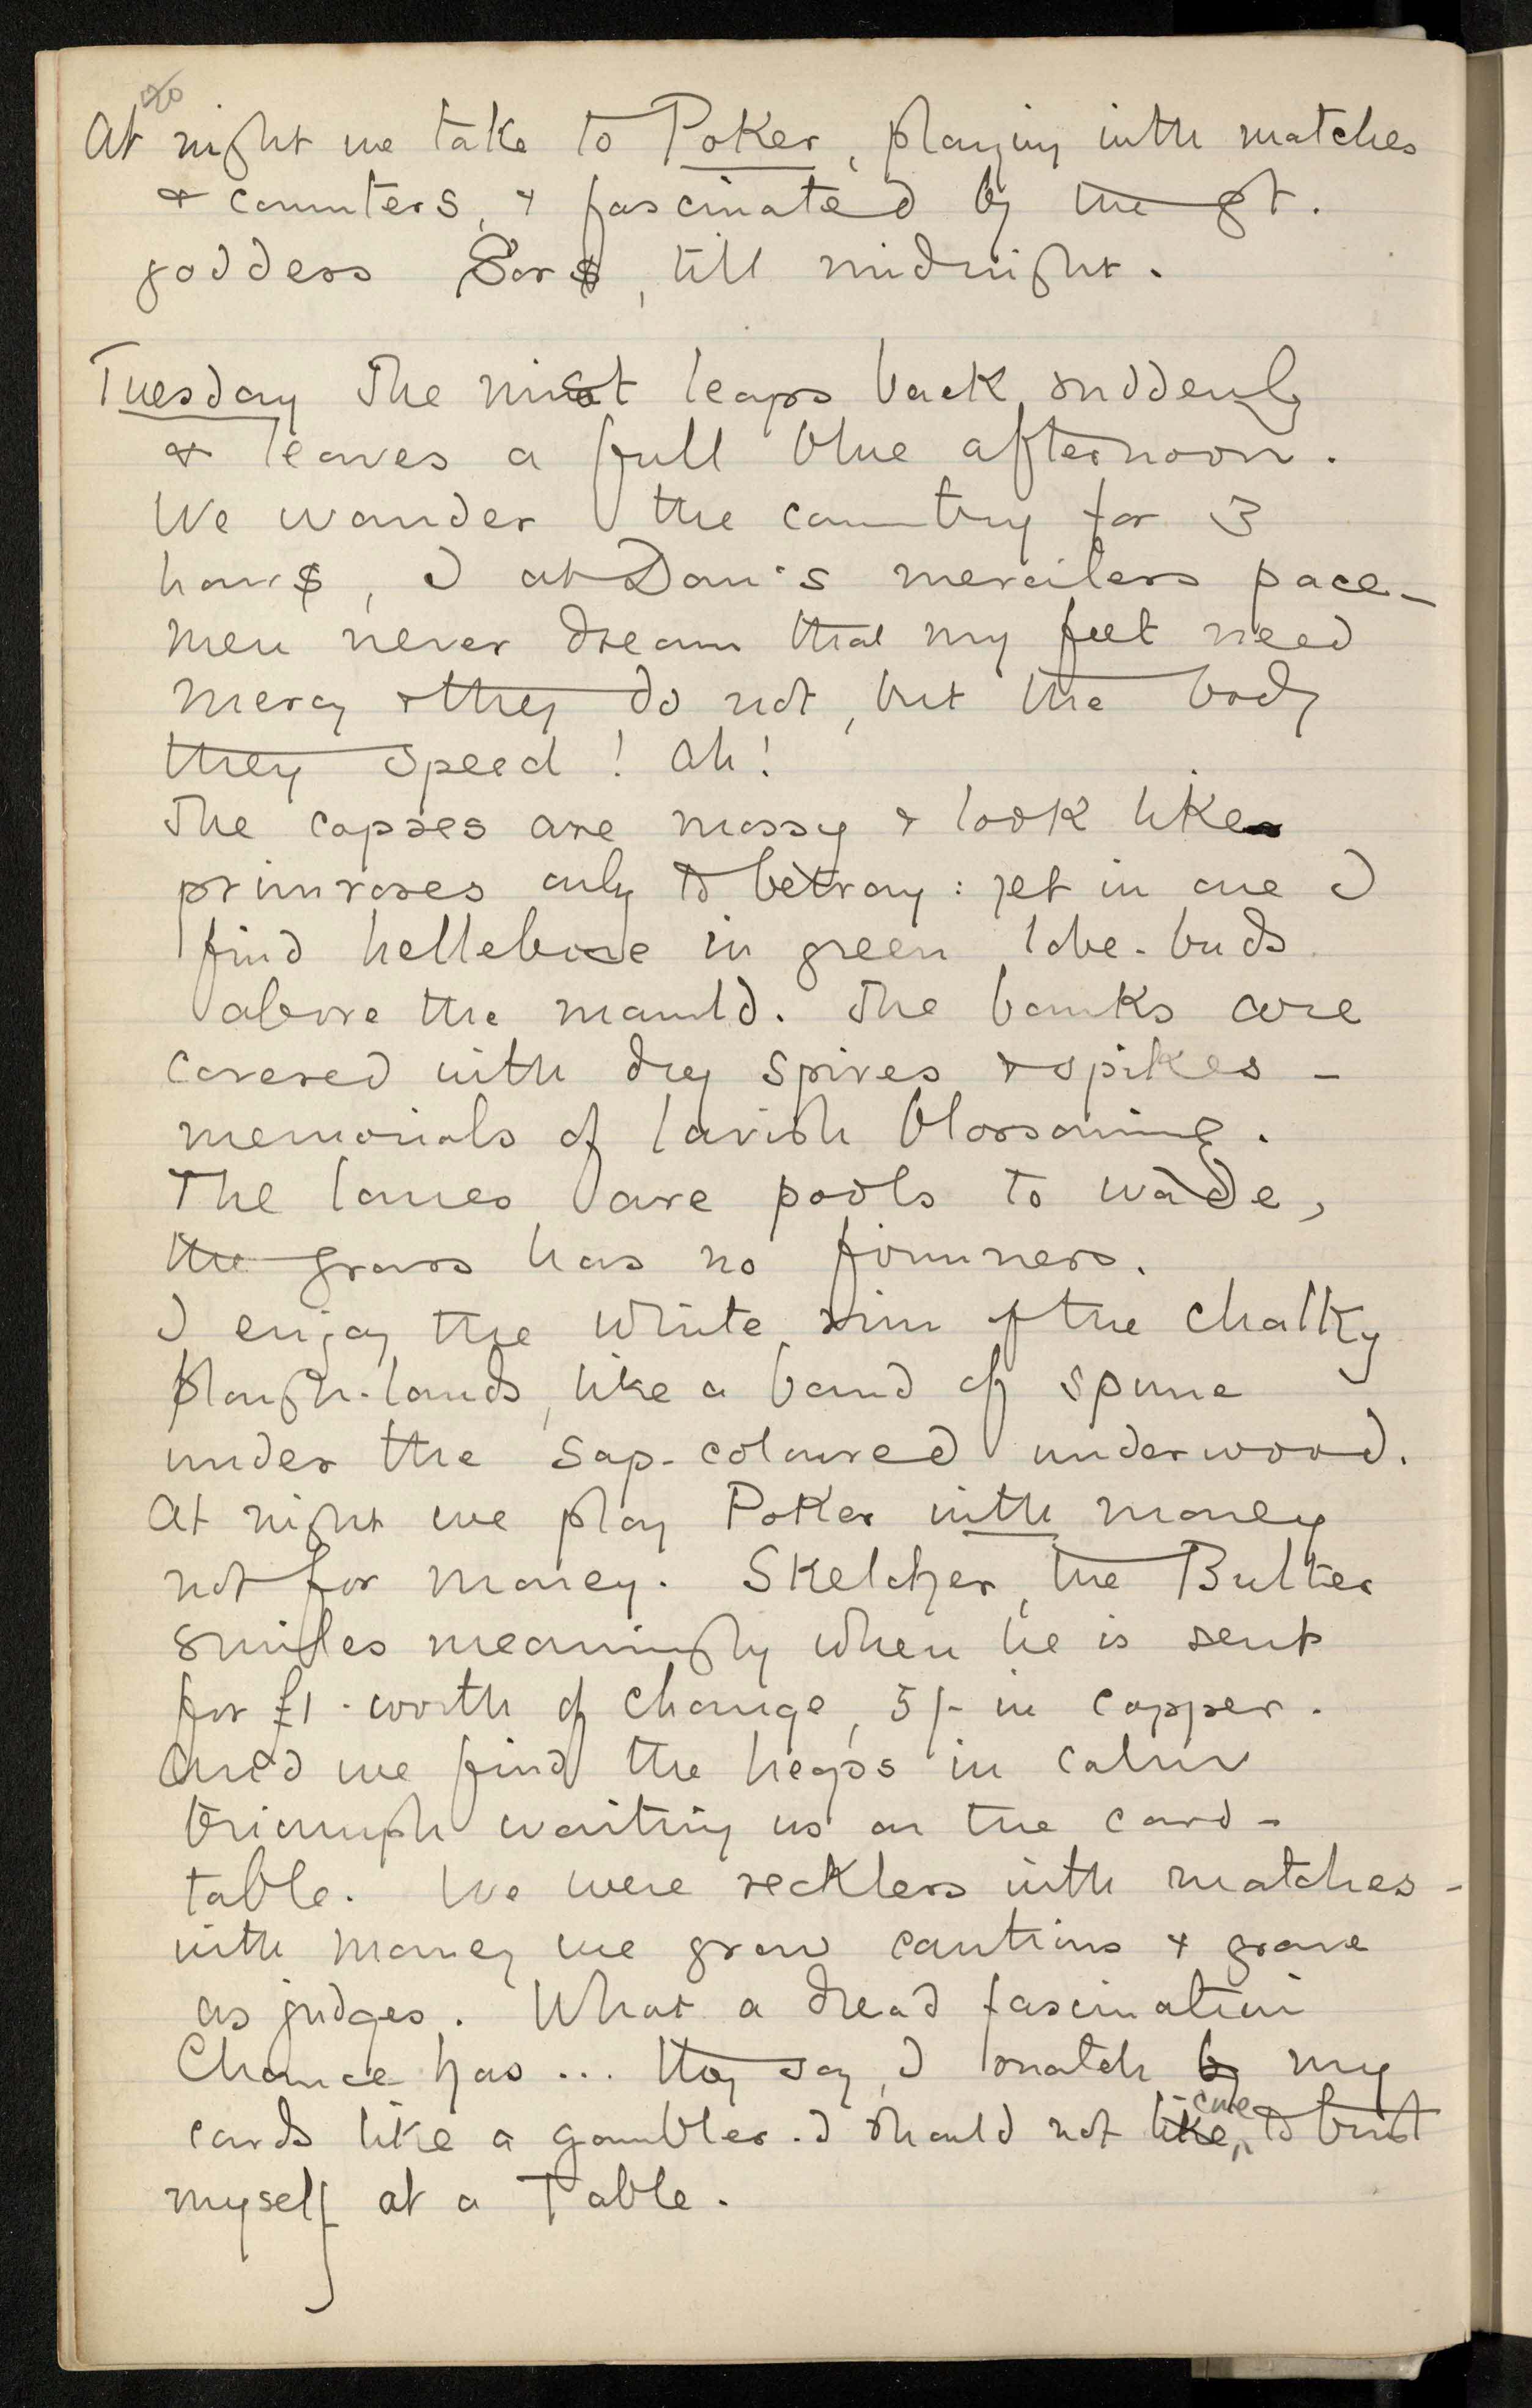 At night we take to Poker, playing with matches
& counters, & fascinated by the gt.
goddess Sors, till midnight.
Tuesday The mist leaps back suddenly
& leaves a full blue afternoon.
We wander the country for 3
hours, I at Dan's merciless pace –
men never dream that my feet need
mercy & they do not, but the body
they speed! Ah!
The copses are mossy & look like
primroses only to betray: yet in one I
find hellebore in green lobe-buds
above the mould. The banks are
covered with dry spires & spikes –
memorials of lavish blossoming.
The lanes are pools to wade,
the grass has no firmness.
I enjoy the white rim of the chalky
plough-lands, like a band of spume
under the sap-coloured underwood.
At night we play Poker with money
not for money. Skelcher, the Butler
smiles meaningly when he is sent
for £1-worth of change, 5/- in copper.
And we find the heaps in calm
triumph waiting us on the card-
table. We were reckless with matches –
with money we grow cautious & grave
as judges. What a dread fascination
Chance has... They say, I snatch by my
cards like a gambler. I should not to trust
myself at a Table.